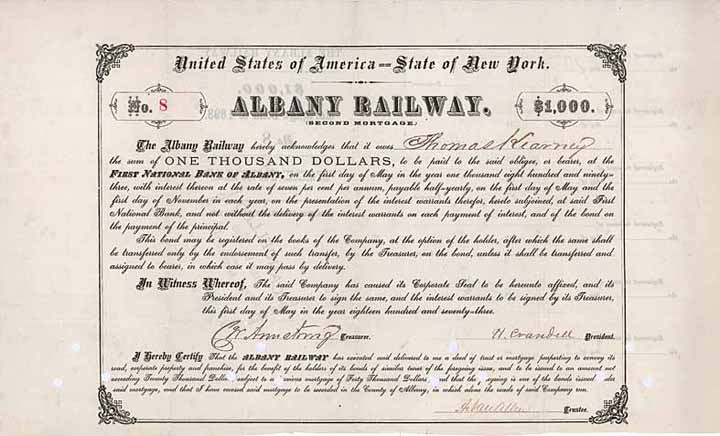 United States of America — State of New York.
No. 8
ALBANY RAILWAY.
(SECOND MORTGAGE.)
$1,000.
The Albany Railway hereby acknowledges that it owes Thomas Kearney
the sum of ONE THOUSAND DOLLARS, to be paid to the said obligee, or bearer, at the
FIRST NATIONAL BANK OF ALBANY, on the first day of May in the year one thousand eight hundred and ninety-
three, with interest thereon at the rate of seven per cent per annum, payable half-yearly, on the first day of May and the
first day of November in each year, on the presentation of the interest warrants therefor, hereto subjoined, at said First
National Bank, and not without the delivery of the interest warrants on each payment of interest, and of the bond on
the payment of the principal.
This bond may be registered on the books of the Company, at the option of the holder, after which the same shall
be transferred only by the endorsement of such transfer, by the Treasurer, on the bond, unless it shall be transferred and
assigned to bearer, in which case it may pass by delivery.
In Witness Whereof, The said Company has caused its Corporate Seal to be hereunto affixed, and its
President and its Treasurer to sign the same, and the interest warrants to be signed by its Treasurer,
this first day of May in the year eighteen hundred and seventy-three.
Armstrong Treasurer. H. Crandell President.
I Hereby Certify That the ALBANY RAILWAY has executed and delivered to me a deed of trust or mortgage purporting to convey its
road, corporate property and franchise, for the benefit of the holders of its bonds of similar tenor of the foregoing issue, and to be issued to an amount not
exceeding Twenty Thousand Dollars, subject to a previous mortgage of Forty Thousand Dollars, and that the foregoing is one of the bonds issued under
said mortgage, and that I have caused said mortgage to be recorded in the County of Albany, in which alone the roads of said Company run.
Trustee.